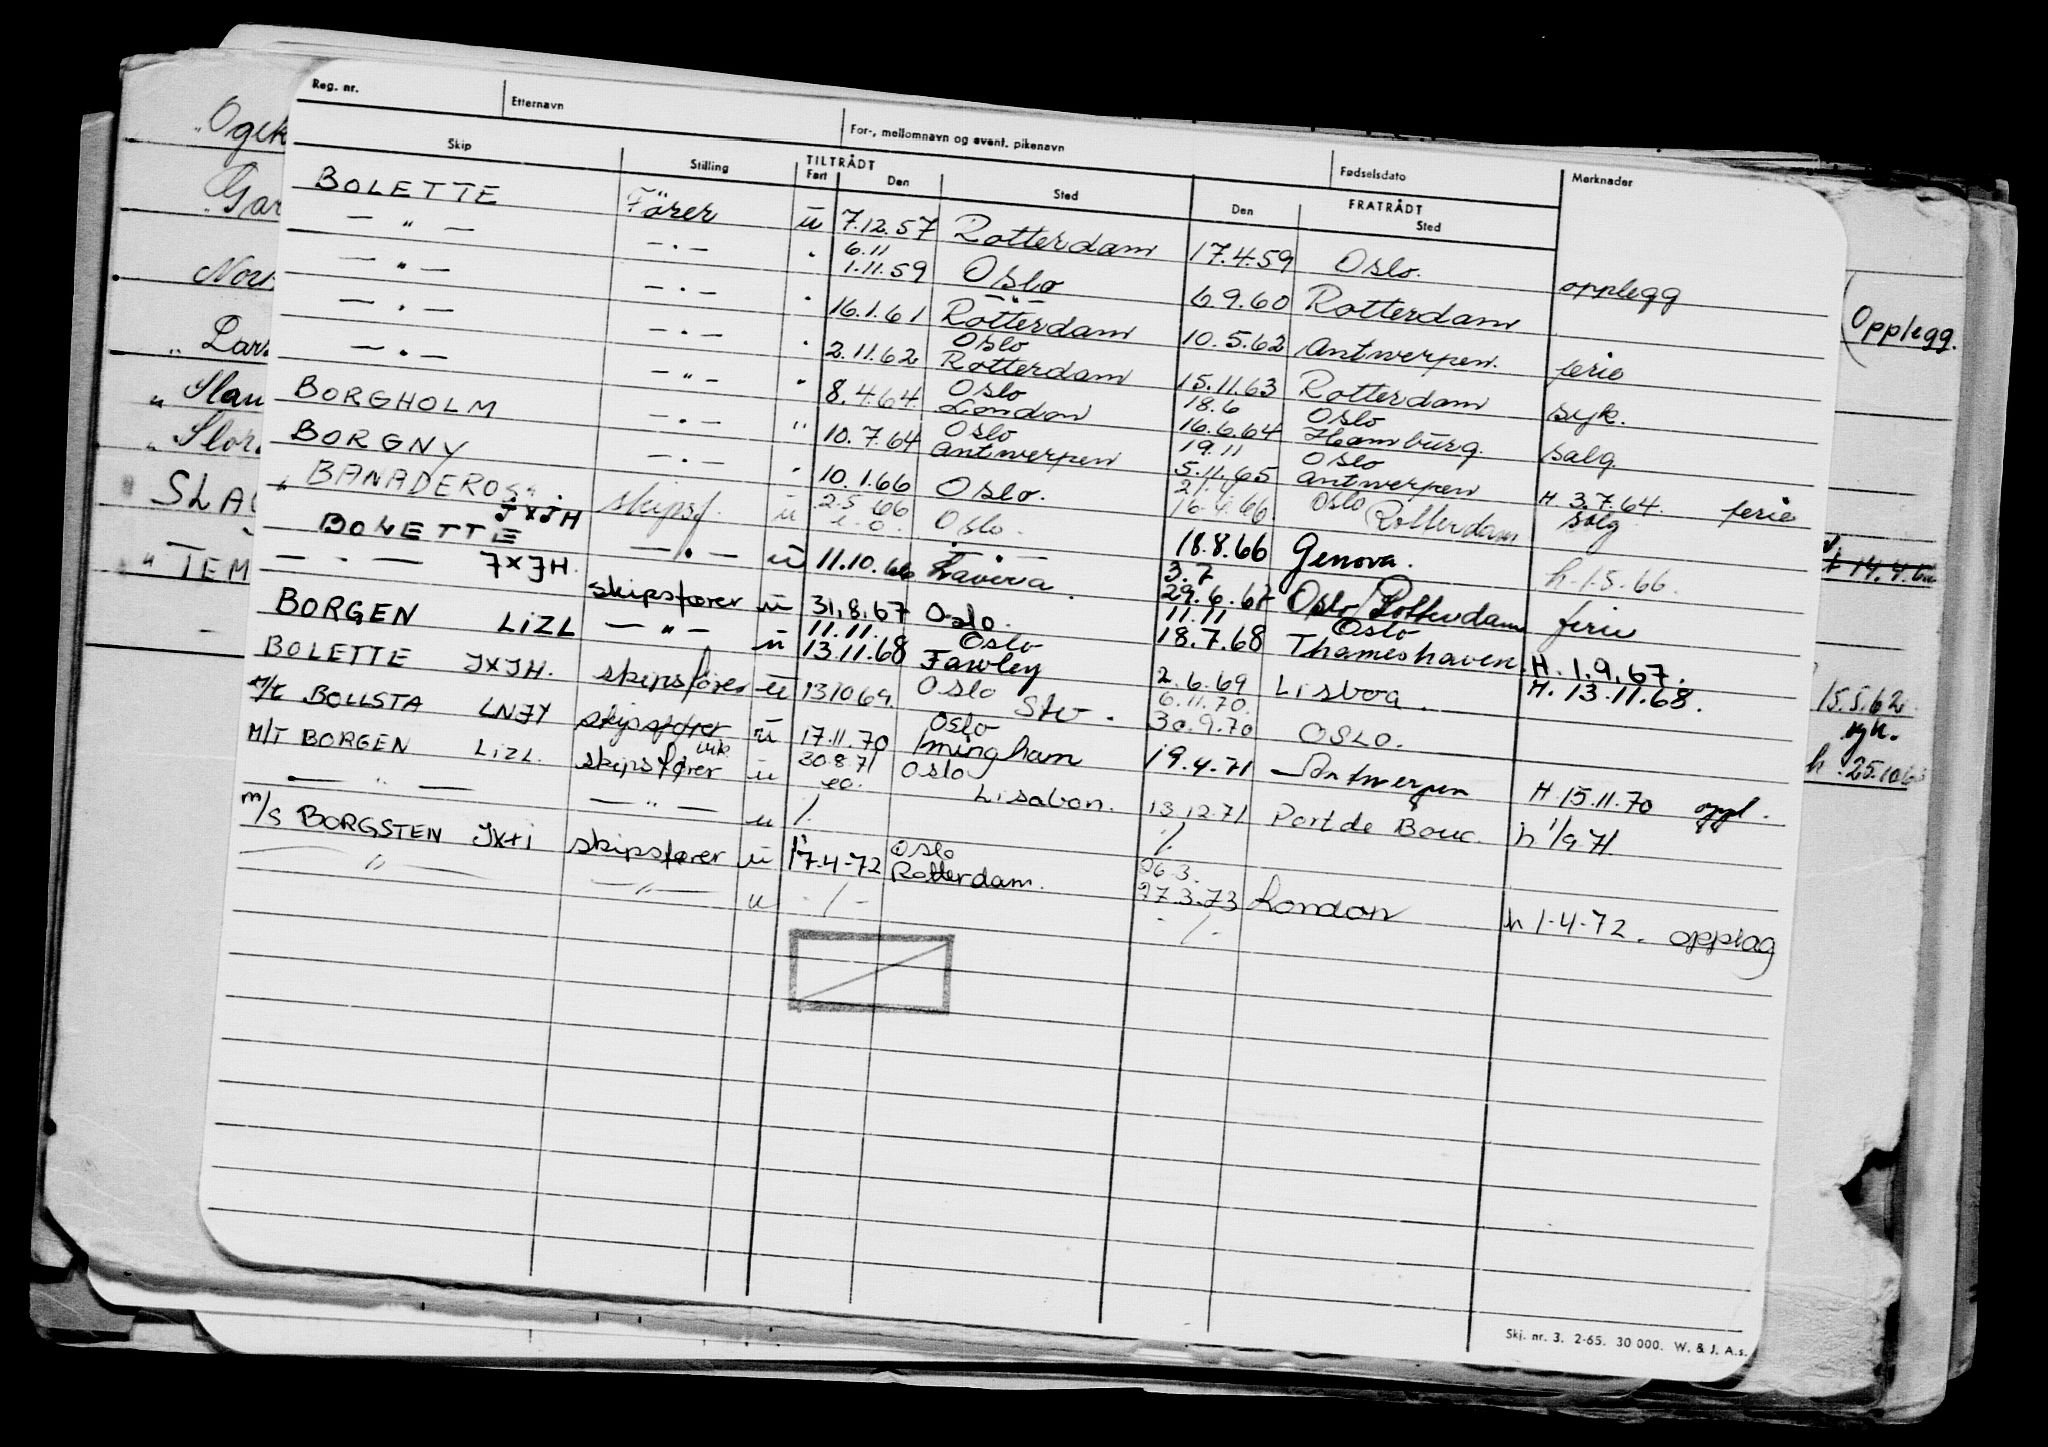 Reg. nr. Etternavn For-, mellomnavn og event. pikenavn Fødselsdato Merknader
Skip Stilling TILTRÅDT FRATRÅDT
Fart Den Sted Den Sted
BOLETTE Förer u 7.12.57 Rotterdam 17.4.59 Oslo. opplegg
— " — — . — . 6.11 1.11.59 Oslo 6.9.60 Rotterdam
— " — — . — . 16.1.61 — " — Rotterdam 10.5.62 Antwerpen. ferie
— . — — . — . 2.11.62 Oslo Rotterdam 15.11.63 Rotterdam syk.
— . — — " — " 8.4.64. Oslo London 18.6 16.6.64 Oslo Hamburg. salg
BORGHOLM — . — " 10.7.64 Oslo Antwerpen 19.11 5.11.65 Oslo Antwerpen H. 3.7.64. ferie
BORGNY — . — . 10.1.66 Oslo. 16.4.66 Oslo/Rotterdam salg
" BANADEROS skipsf. u 2.5 66 Oslo. 18.8.66 Genova. h. 1.5.66.
BOLETTE JXJH — . — u 11.10.66 Lavera. 3.7 29.6.67 Oslo/Rotterdam ferie
— . — JXJH. skipsfører u 31.8.67 Oslo. 11.11 18.7.68 Oslo Thameshaven. H. 1.9.67.
BORGEN LIZL — " — u 11.11. 13.11.68 Oslo Fawley 2.6.69 Lisboa. H. 13.11.68.
BOLETTE JXJH. skipsfører u 13.10.69. Oslo 6.11.70. 30.9.70 OSLO.
M/T BOLLSTA LNJY skipsfører u 17.11.70 Oslo Imingham 19.4.71 Antwerpen H. 15.11.70 oppl.
M/T BORGEN LIZL. skipsfører u 30.8.71 Oslo Lisabon. 13.12.71 Port de Bouc. h 1/9.71.
— " — — " — u /.  /.
M/S BORGSTEN JXTI skipsfører u 17.4-72 Oslo Rotterdam. 26.3. 27.3.73 London h 1-4-72. opplag
— " — — " — u - / - - / -
Skj. nr. 3. 2-65. 30 000. W. & J. A.s.
Opplegg.
SLA
" TEM
15.5.62
syk.
h. 25.10.6